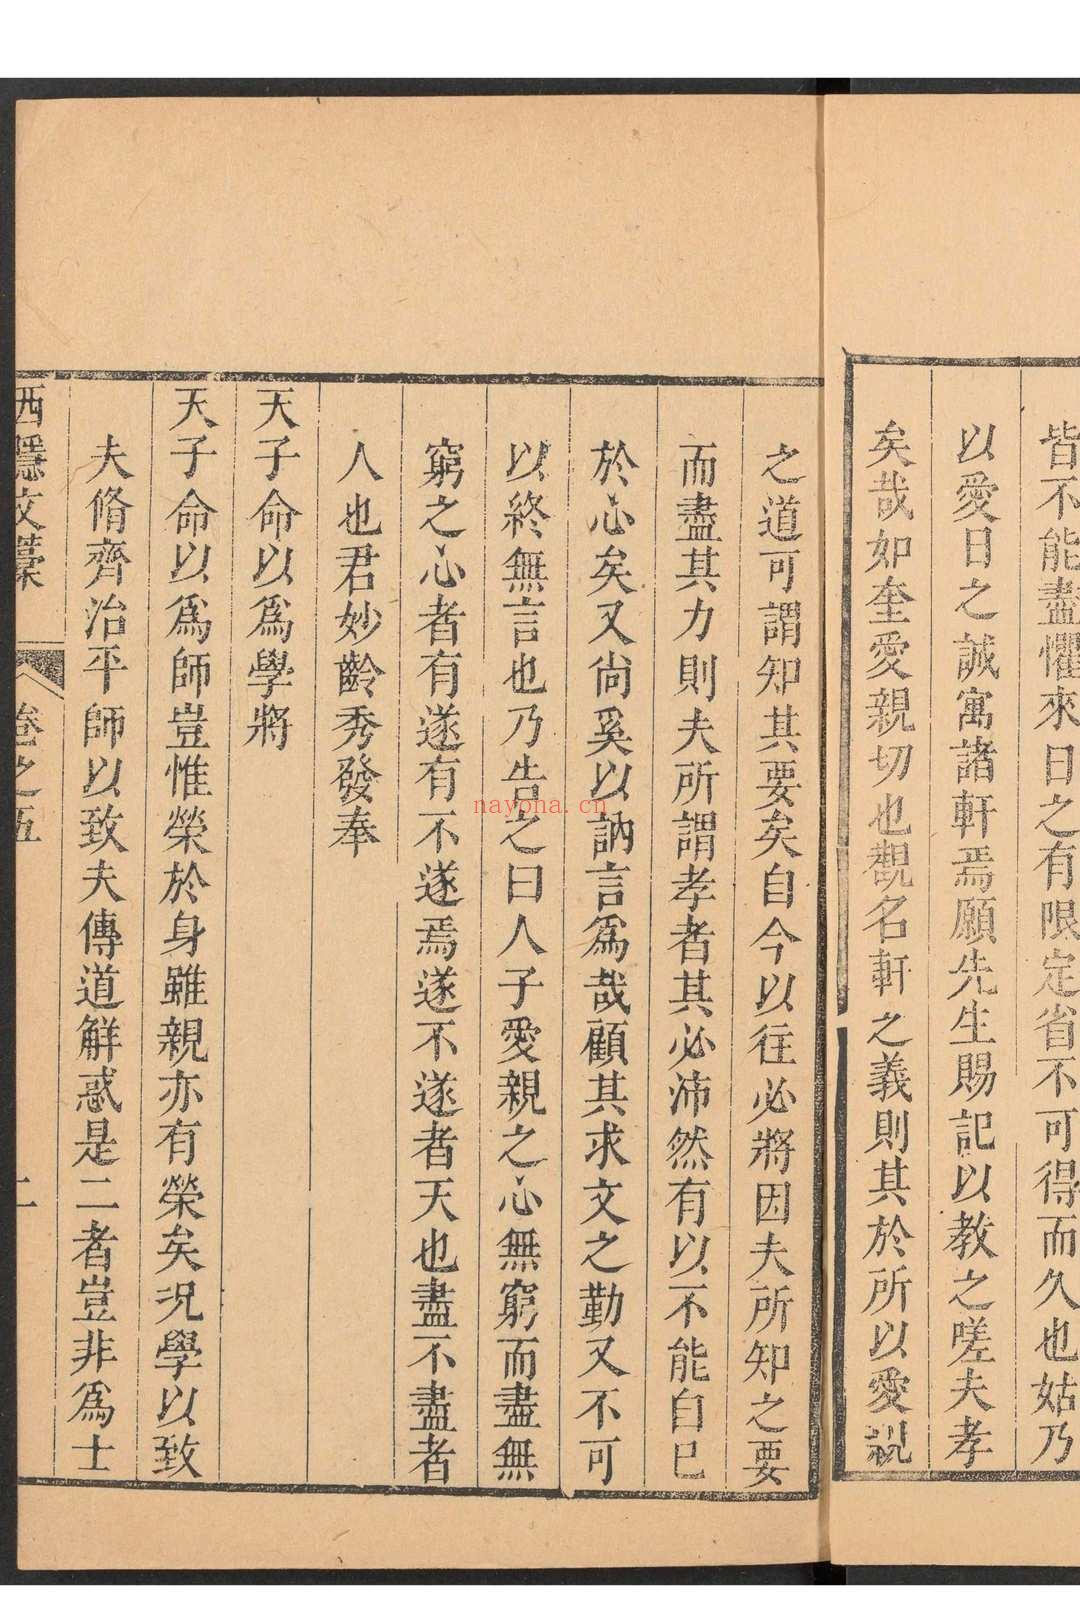 皆不能盡懼來日之有限定省不可得而久也姑乃
以愛日之誠寓諸軒焉願先生賜記以教之嗟夫孝
矣哉如奎愛親切也觀名軒之義則其於所以愛親
之道可謂知其要矣自今以往必將因夫所知之要
而盡其力則夫所謂孝者其必沛然有以不能自已
於心矣又尚奚以訥言爲哉顧其求文之勤又不可
以終無言也乃告之曰人子愛親之心無窮而盡無
窮之心者有遂有不遂焉遂不遂者天也盡不盡者
人也君妙齡秀發奉
天子命以爲學將
天子命以爲師豈惟榮於身雖親亦有榮矣況學以致
夫脩齊治平師以致夫傳道解惑是二者豈非爲士
西隱文藁 卷之五 二
nayona.cn